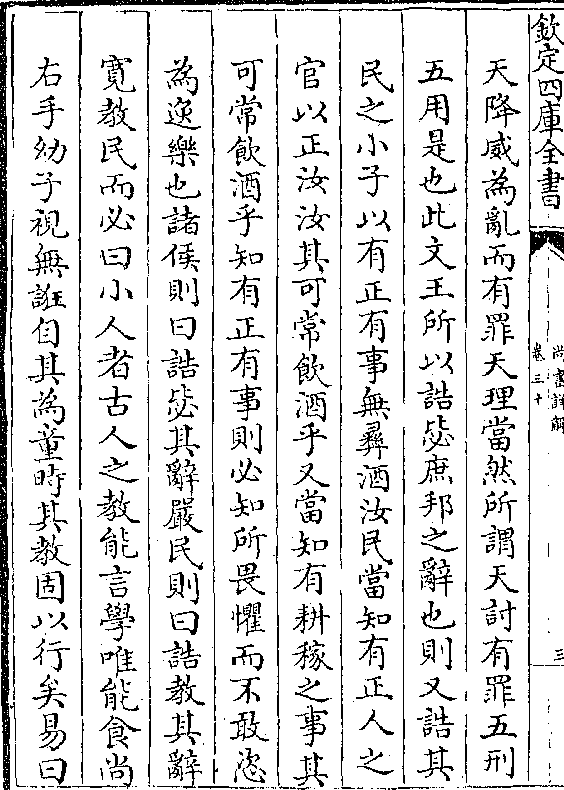 欽定四庫全書
尚書詳解
卷三十
三
天降威為亂而有罪天理當然所謂天討有罪五刑
五用是也此文王所以誥毖庶邦之辭也則又誥其
民之小子以有正有事無彞酒汝民當知有正人之
官以正汝汝其可常飲酒乎又當知有耕稼之事其
可常飲酒乎知有正有事則必知所畏懼而不敢恣
為逸樂也諸侯則曰誥毖其辭嚴民則曰誥教其辭
寛教民而必曰小人者古人之教能言學唯能食尚
右手幼子視無誑自其為童時其教固以行矣易曰